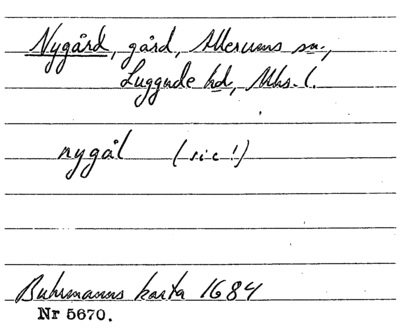 Nygård, gård, Allerums sn.,
Luggude hd, Mhs. l.
nygål (sic!)
Buhrmanns karta 1684
Nr 5670.